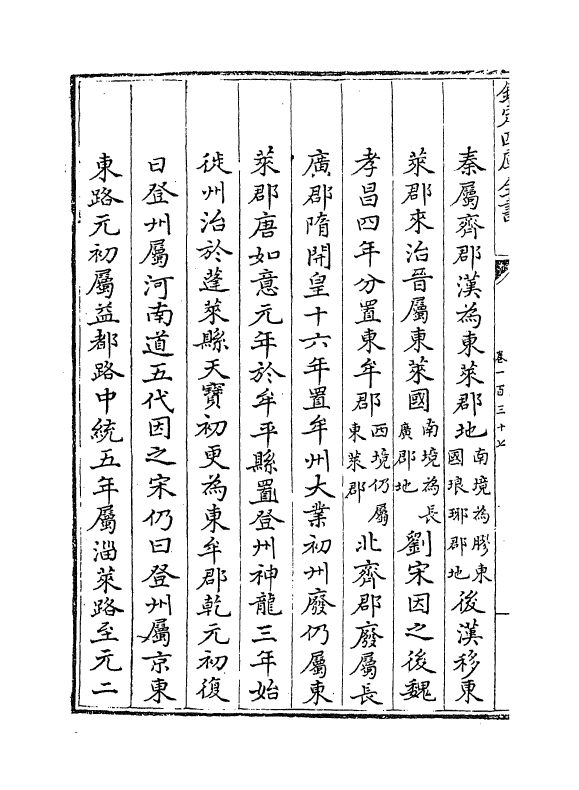 欽定四庫全書
卷一百三十七
秦屬齊郡漢為東萊郡地南境為膠東國琅琊郡地後漢移東
萊郡來治晉屬東萊國南境為長廣郡地劉宋因之後魏
孝昌四年分置東牟郡西境仍屬東萊郡北齊郡廢屬長
廣郡隋開皇十六年置牟州大業初州廢仍屬東
萊郡唐如意元年於牟平縣置登州神龍三年始
徙州治於蓬萊縣天寶初更為東牟郡乾元初復
曰登州屬河南道五代因之宋仍曰登州屬京東
東路元初屬益都路中統五年屬淄萊路至元二